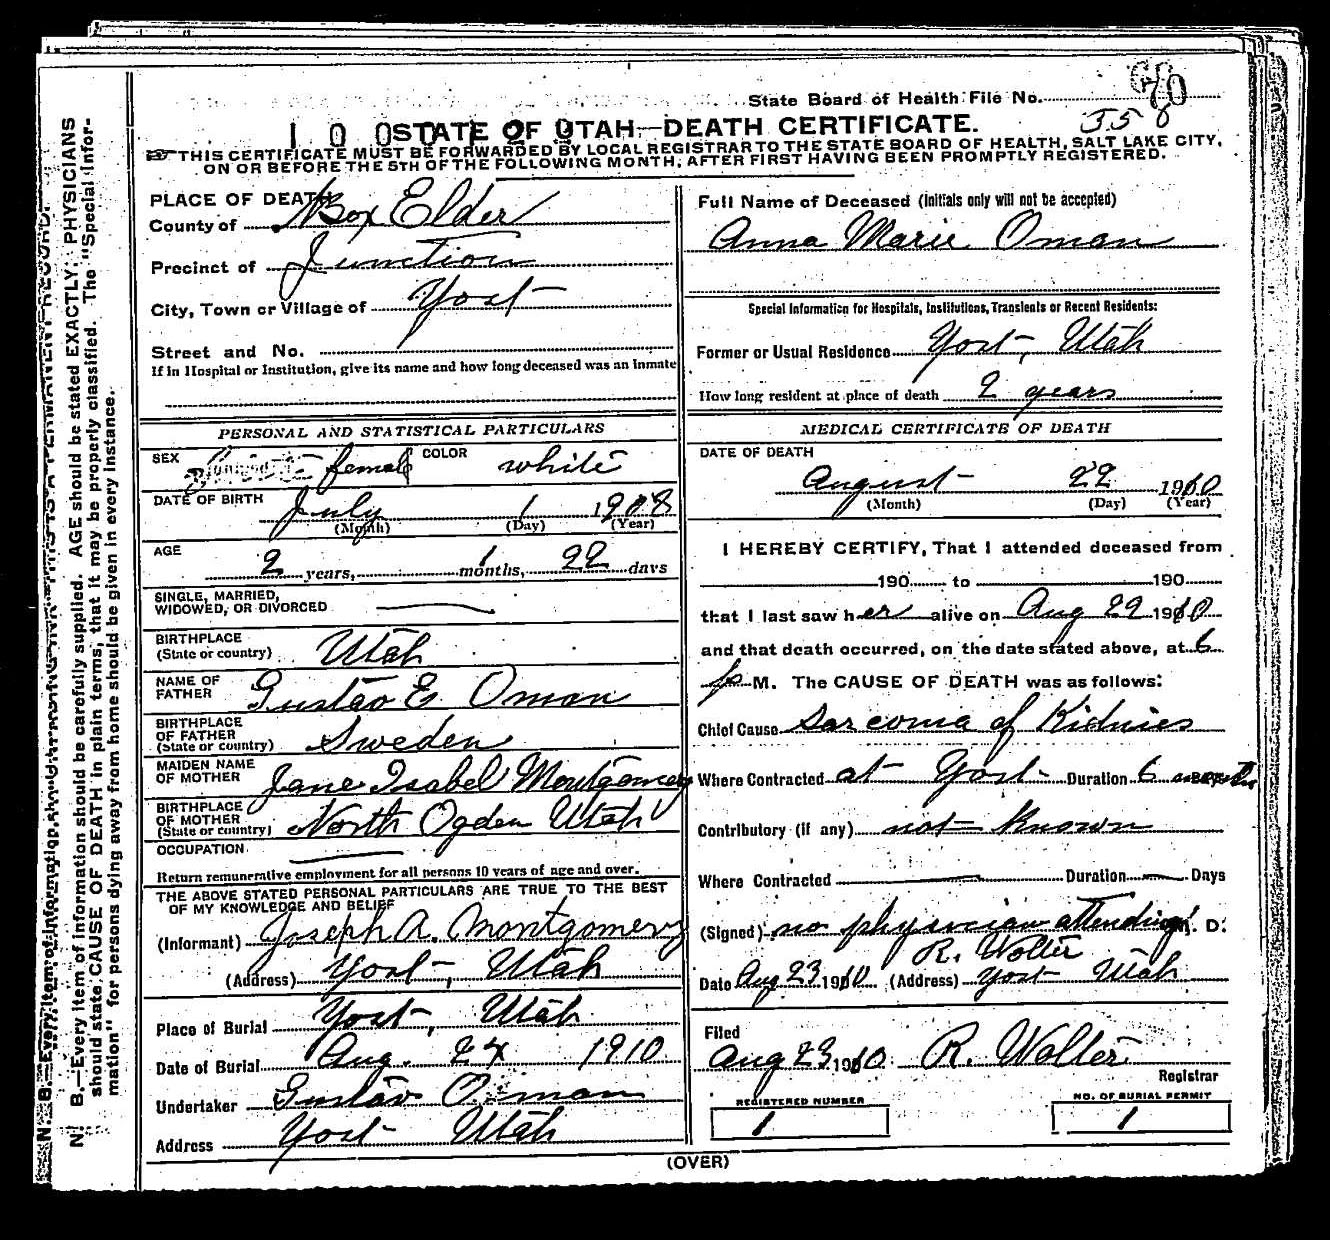 State Board of Health File No.
35
1 0 0 0
STATE OF UTAH—DEATH CERTIFICATE.
THIS CERTIFICATE MUST BE FORWARDED BY LOCAL REGISTRAR TO THE STATE BOARD OF HEALTH, SALT LAKE CITY,
ON OR BEFORE THE 5TH OF THE FOLLOWING MONTH, AFTER FIRST HAVING BEEN PROMPTLY REGISTERED.
N. B.—Every item of information should be carefully supplied. AGE should be stated EXACTLY. PHYSICIANS
should state CAUSE OF DEATH in plain terms, that it may be properly classified. The "Special Infor-
mation" for persons dying away from home should be given in every instance.
PLACE OF DEATH
County of Box Elder
Precinct of Junction
City, Town or Village of Yost
Street and No.
If in Hospital or Institution, give its name and how long deceased was an inmate
PERSONAL AND STATISTICAL PARTICULARS
SEX female COLOR white
DATE OF BIRTH July 1 1908
(Month) (Day) (Year)
AGE 2 years, 1 months, 22 days
SINGLE, MARRIED,
WIDOWED, OR DIVORCED
BIRTHPLACE
(State or country) Utah
NAME OF
FATHER Gustav E Oman
BIRTHPLACE
OF FATHER
(State or country) Sweden
MAIDEN NAME
OF MOTHER Jane Isabel Montgomery
BIRTHPLACE
OF MOTHER
(State or country) North Ogden Utah
OCCUPATION
Return remunerative employment for all persons 10 years of age and over.
THE ABOVE STATED PERSONAL PARTICULARS ARE TRUE TO THE BEST
OF MY KNOWLEDGE AND BELIEF
(Informant) Joseph A. Montgomery
(Address) Yost, Utah
Place of Burial Yost, Utah
Date of Burial Aug. 24 1910
Undertaker Gustav Oman
Address Yost Utah
Full Name of Deceased (Initials only will not be accepted)
Anna Marie Oman
Special Information for Hospitals, Institutions, Transients or Recent Residents:
Former or Usual Residence Yost, Utah
How long resident at place of death 2 years
MEDICAL CERTIFICATE OF DEATH
DATE OF DEATH
August 22 1910
(Month) (Day) (Year)
I HEREBY CERTIFY, That I attended deceased from
190 to 190
that I last saw her alive on Aug 22 1910
and that death occurred, on the date stated above, at 6
p M. The CAUSE OF DEATH was as follows:
Chief Cause Sarcoma of Kidnies
Where Contracted at Yost Duration 6 months
Contributory (if any) not known
Where Contracted Duration Days
(Signed) no physician attending M. D.
R. Wolter
Date Aug 23 1910 (Address) Yost Utah
Filed
Aug 23 1910 R. Wolter
Registrar
REGISTERED NUMBER
1
NO. OF BURIAL PERMIT
1
(OVER)